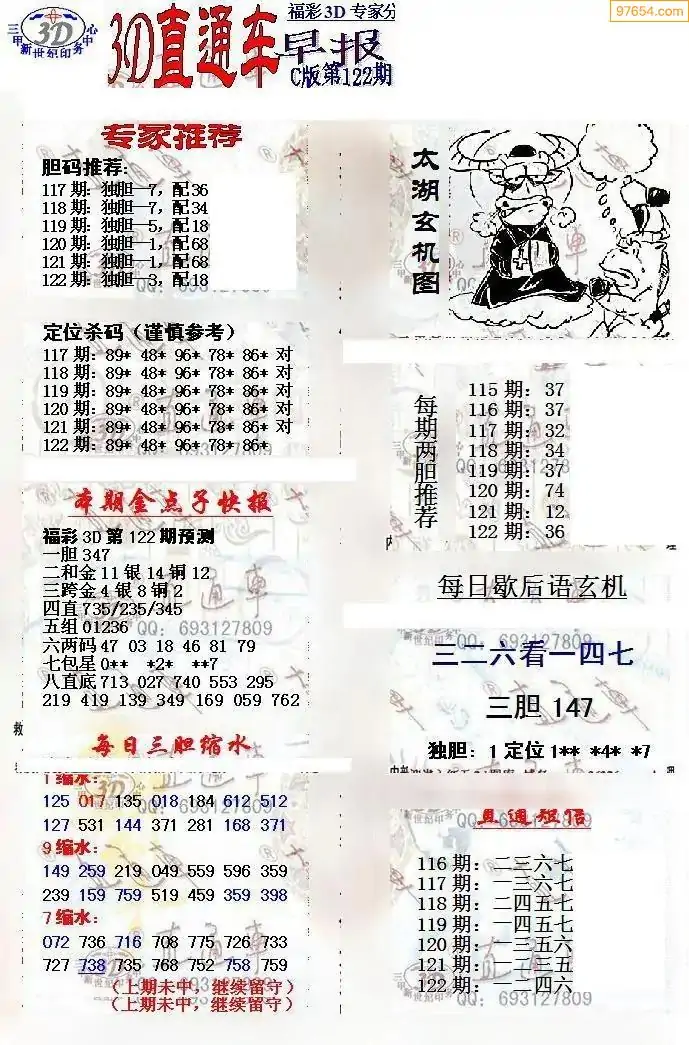 97654.com
三甲新世纪印务中心
3D
3D直通车
福彩3D 专家分
早报
C版第122期
专家推荐
胆码推荐:
117 期: 独胆—7, 配36
118 期: 独胆—7, 配34
119 期: 独胆—5, 配18
120 期: 独胆—1, 配68
121 期: 独胆—1, 配68
122 期: 独胆—3, 配18
QQ: 693127809
定位杀码（谨慎参考）
117 期: 89* 48* 96* 78* 86* 对
118 期: 89* 48* 96* 78* 86* 对
119 期: 89* 48* 96* 78* 86* 对
120 期: 89* 48* 96* 78* 86* 对
121 期: 89* 48* 96* 78* 86* 对
122 期: 89* 48* 96* 78* 86*
本期金点子快报
福彩 3D 第 122 期预测
一胆 347
二和金 11 银 14 铜 12
三跨金 4 银 8 铜 2
四直 735/235/345
五组 01236
QQ: 693127809
六两码 47 03 18 46 81 79
七包星 0** *2* **7
八直底 713 027 740 553 295
219 419 139 349 169 059 762
每日三胆缩水
1 缩水:
125 017 135 018 184 612 512
127 531 144 371 281 168 371
9 缩水:
149 259 219 049 559 596 359
239 159 759 519 459 359 398
7 缩水:
072 736 716 708 775 726 733
727 738 735 768 752 758 759
（上期未中，继续留守）
（上期未中，继续留守）
太湖玄机图
每期两胆推荐
115 期: 37
116 期: 37
117 期: 32
118 期: 34
119 期: 37
120 期: 74
121 期: 12
122 期: 36
每日歇后语玄机
三二六看一四七
三胆 147
独胆: 1 定位 1** *4* *7
直通短信
116 期: 二三六七
117 期: 一三六七
118 期: 二四五七
119 期: 一四五七
120 期: 一三五六
121 期: 一二三五
122 期: 一二四六
QQ: 693127809